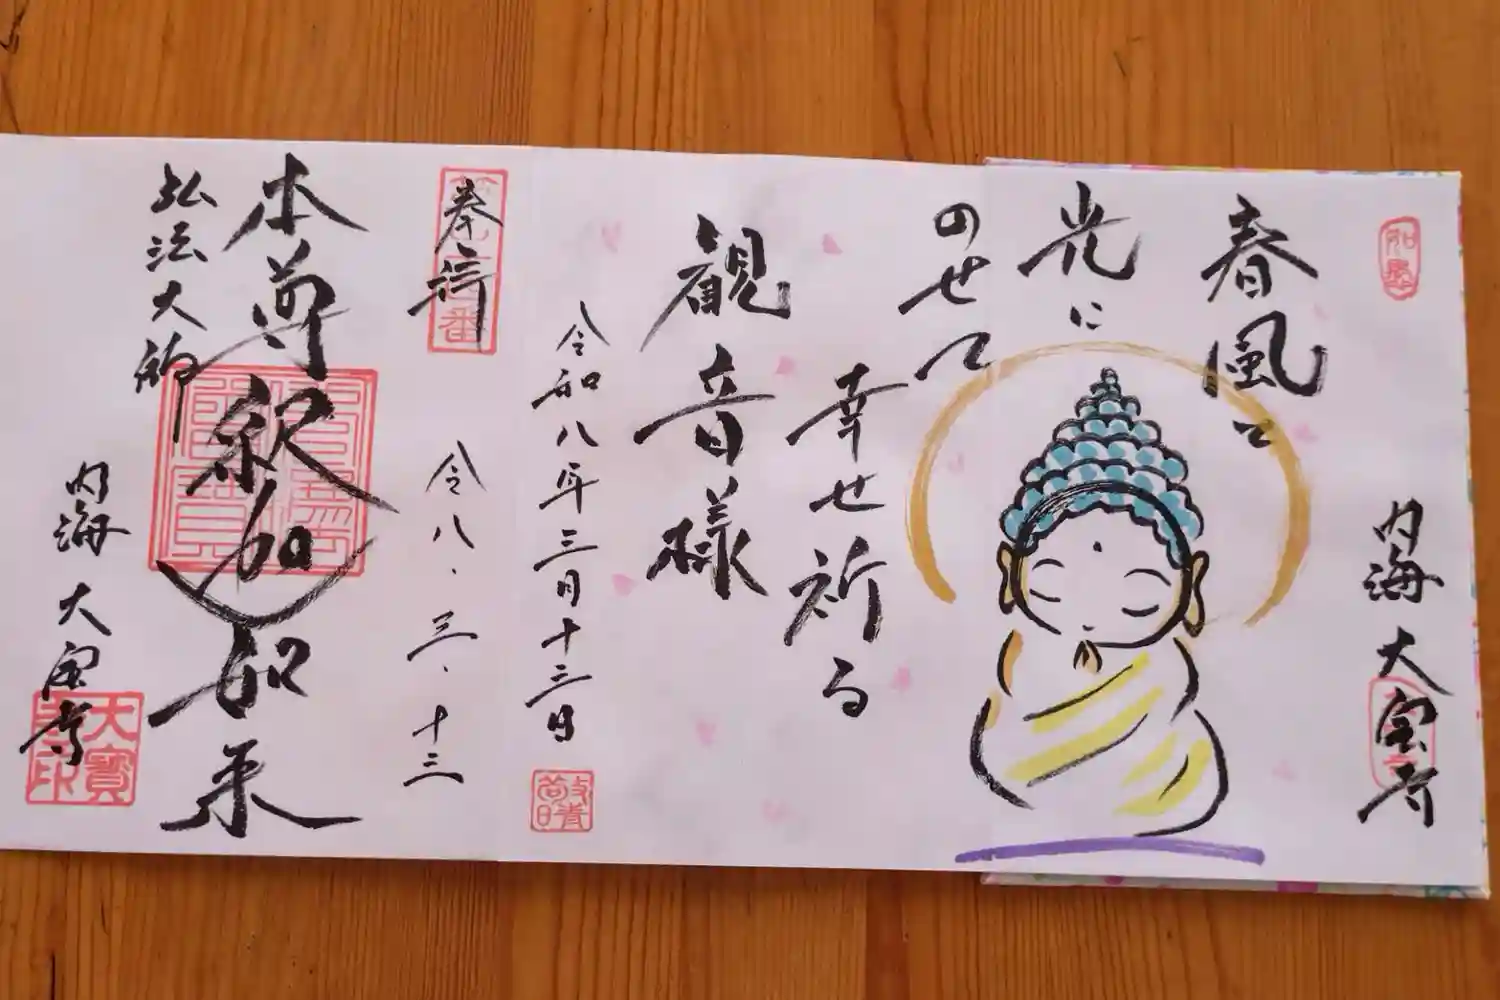 春風と
光に
のせて
幸せ祈る
観音様
令和八年三月十三日
内海 大宝寺
奉拝
令八.三.十三
本尊釈加如来
弘法大師
内海 大宝寺
大寳
寺印